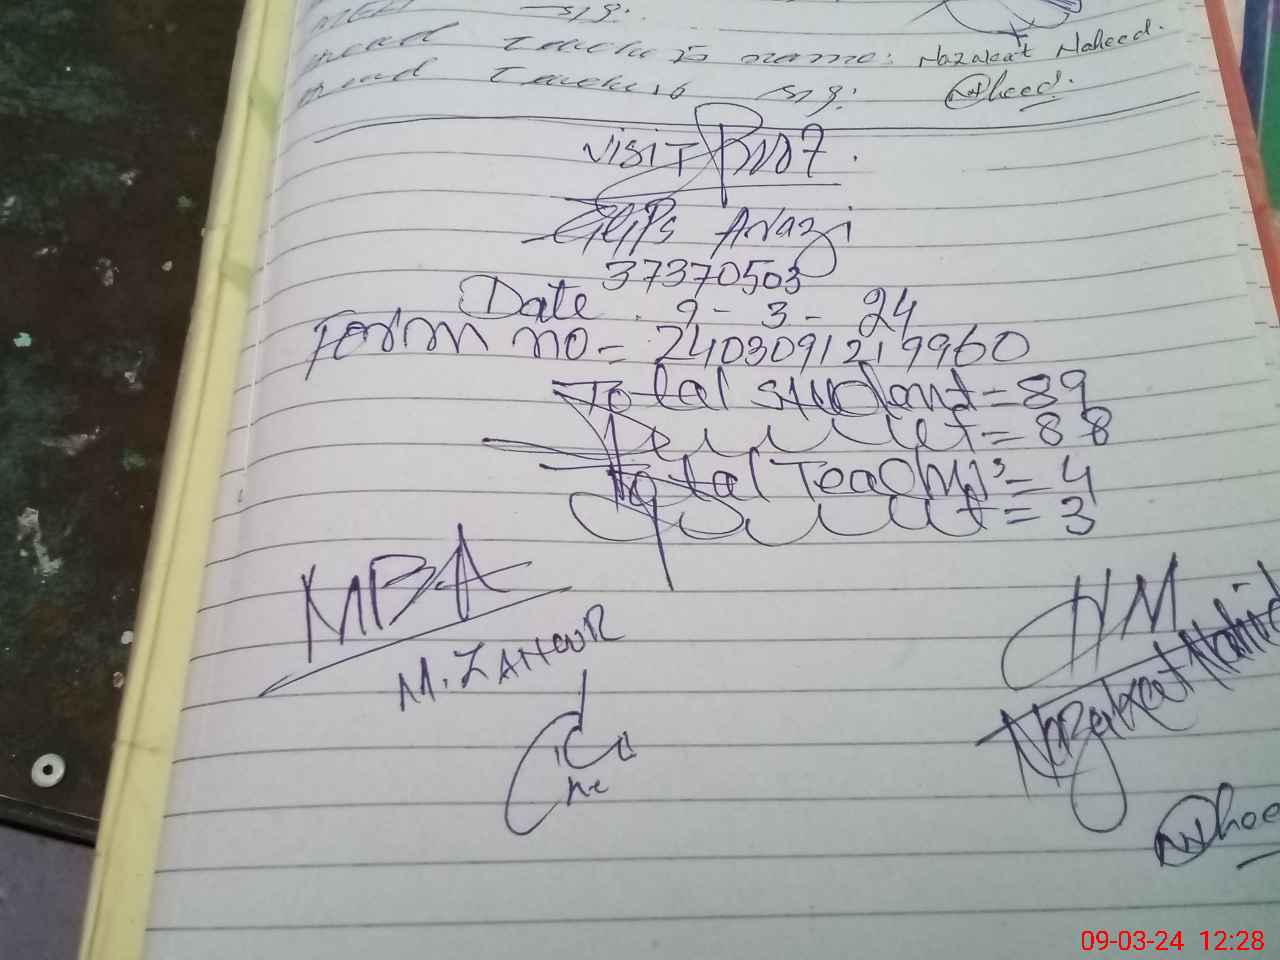 sig.
Head Teacher's name: Nazakat Naheed.
Head Teacher's sig: Naheed.
VISIT Proof.
GGPS Arazi
37370503
Date . 9 - 3 - 24
Form no = 2403091219960
Total student = 89
Present = 88
Total Teachers = 4
Present = 3
MBA
M. ZAHOOR
HM
Nazakat Nahid
09-03-24 12:28